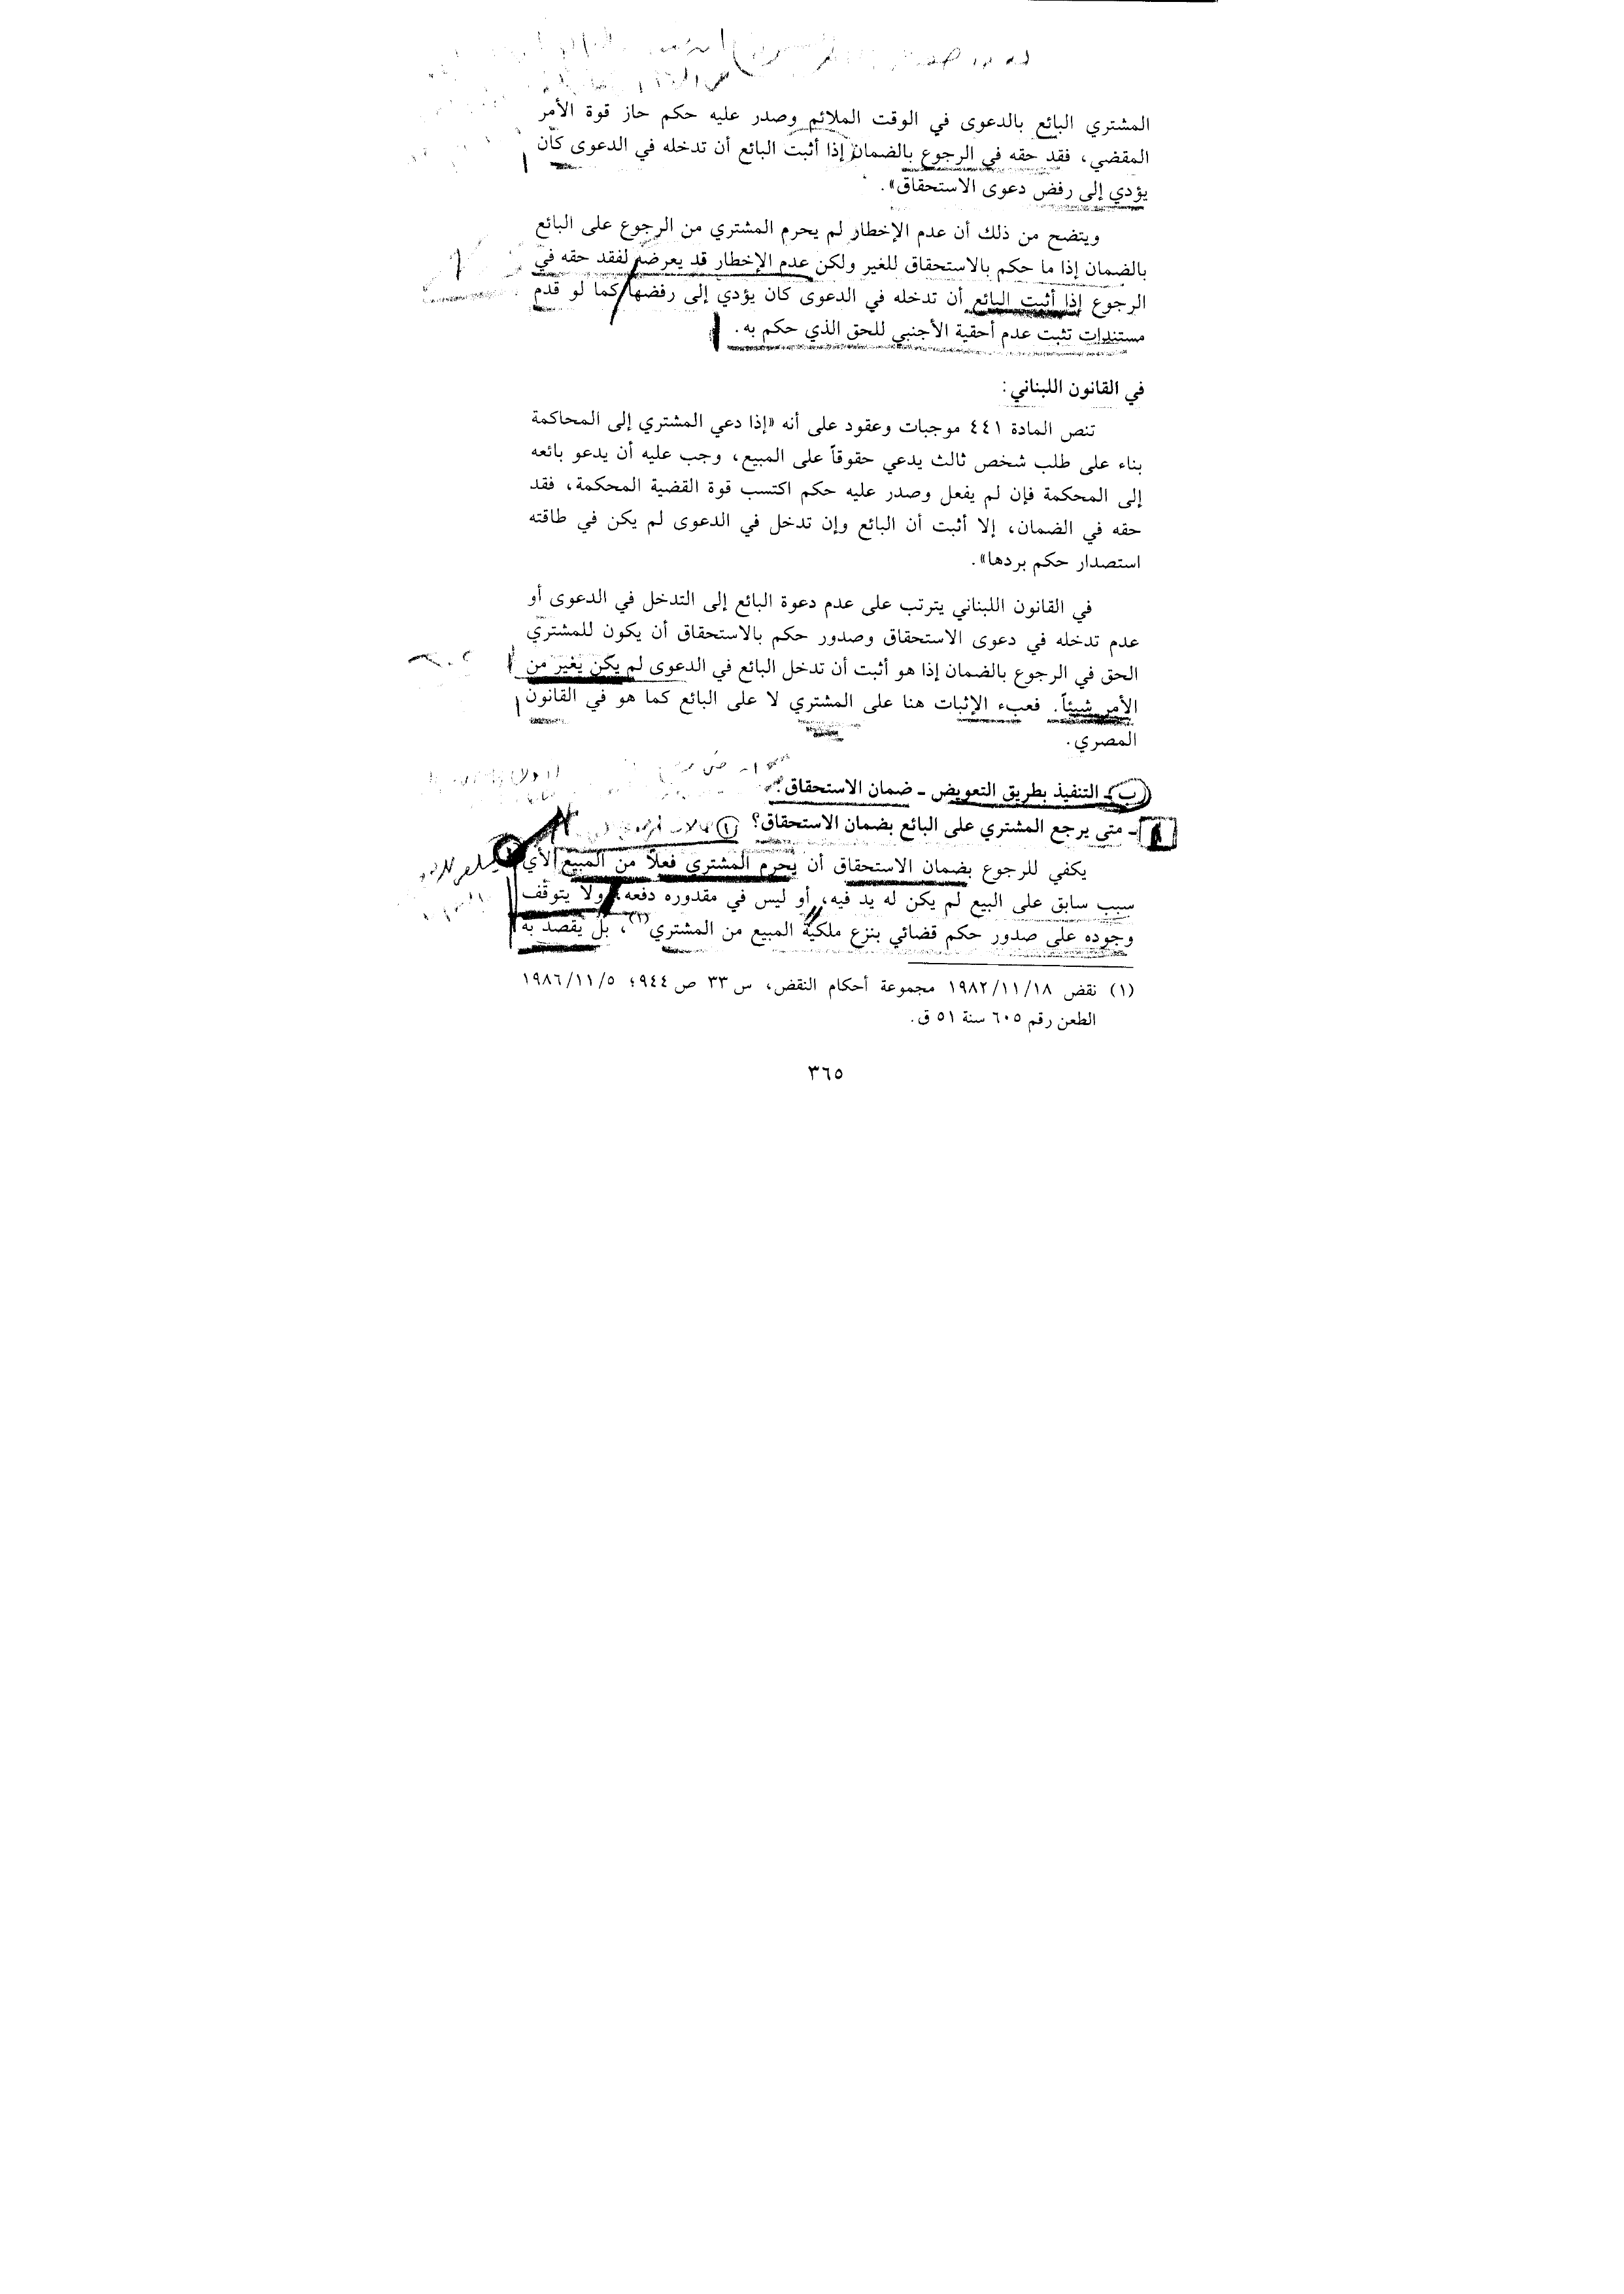 المشتري البائع بالدعوى في الوقت الملائم وصدر عليه حكم حاز قوة الأمر
المقضي، فقد حقه في الرجوع بالضمان إذا أثبت البائع أن تدخله في الدعوى كان
يؤدي إلى رفض دعوى الاستحقاق».
ويتضح من ذلك أن عدم الإخطار لم يحرم المشتري من الرجوع على البائع
بالضمان إذا ما حكم بالاستحقاق للغير ولكن عدم الإخطار قد يعرضه لفقد حقه في
الرجوع إذا أثبت البائع أن تدخله في الدعوى كان يؤدي إلى رفضها كما لو قدم
مستندات تثبت عدم أحقية الأجنبي للحق الذي حكم به.
في القانون اللبناني:
تنص المادة ٤٤١ موجبات وعقود على أنه «إذا دعي المشتري إلى المحاكمة
بناء على طلب شخص ثالث يدعي حقوقاً على المبيع، وجب عليه أن يدعو بائعه
إلى المحكمة فإن لم يفعل وصدر عليه حكم اكتسب قوة القضية المحكمة، فقد
حقه في الضمان، إلا أثبت أن البائع وإن تدخل في الدعوى لم يكن في طاقته
استصدار حكم بردها».
في القانون اللبناني يترتب على عدم دعوة البائع إلى التدخل في الدعوى أو
عدم تدخله في دعوى الاستحقاق وصدور حكم بالاستحقاق أن يكون للمشتري
الحق في الرجوع بالضمان إذا هو أثبت أن تدخل البائع في الدعوى لم يكن يغير من
الأمر شيئاً. فعبء الإثبات هنا على المشتري لا على البائع كما هو في القانون
المصري.
ب - التنفيذ بطريق التعويض - ضمان الاستحقاق:
١ - متى يرجع المشتري على البائع بضمان الاستحقاق؟
يكفي للرجوع بضمان الاستحقاق أن يحرم المشتري فعلاً من المبيع لأي
سبب سابق على البيع لم يكن له يد فيه، أو ليس في مقدوره دفعه، ولا يتوقف
وجوده على صدور حكم قضائي بنزع ملكية المبيع من المشتري(١)، بل يقصد به
(١) نقض ١٩٨٢/١١/١٨ مجموعة أحكام النقض، س ٣٣ ص ٩٤٤؛ ١٩٨٦/١١/٥
الطعن رقم ٦٠٥ سنة ٥١ ق.
٣٦٥